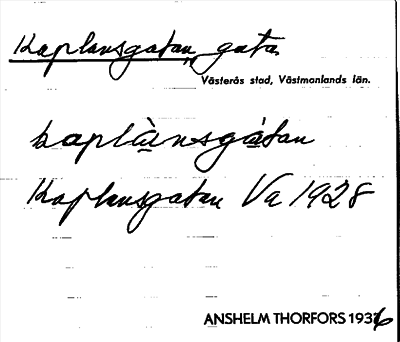 Kaplansgatan, gata.
Västerås stad, Västmanlands län.
kaplànsgàtan
Kaplansgatan Va 1928
ANSHELM THORFORS 1936